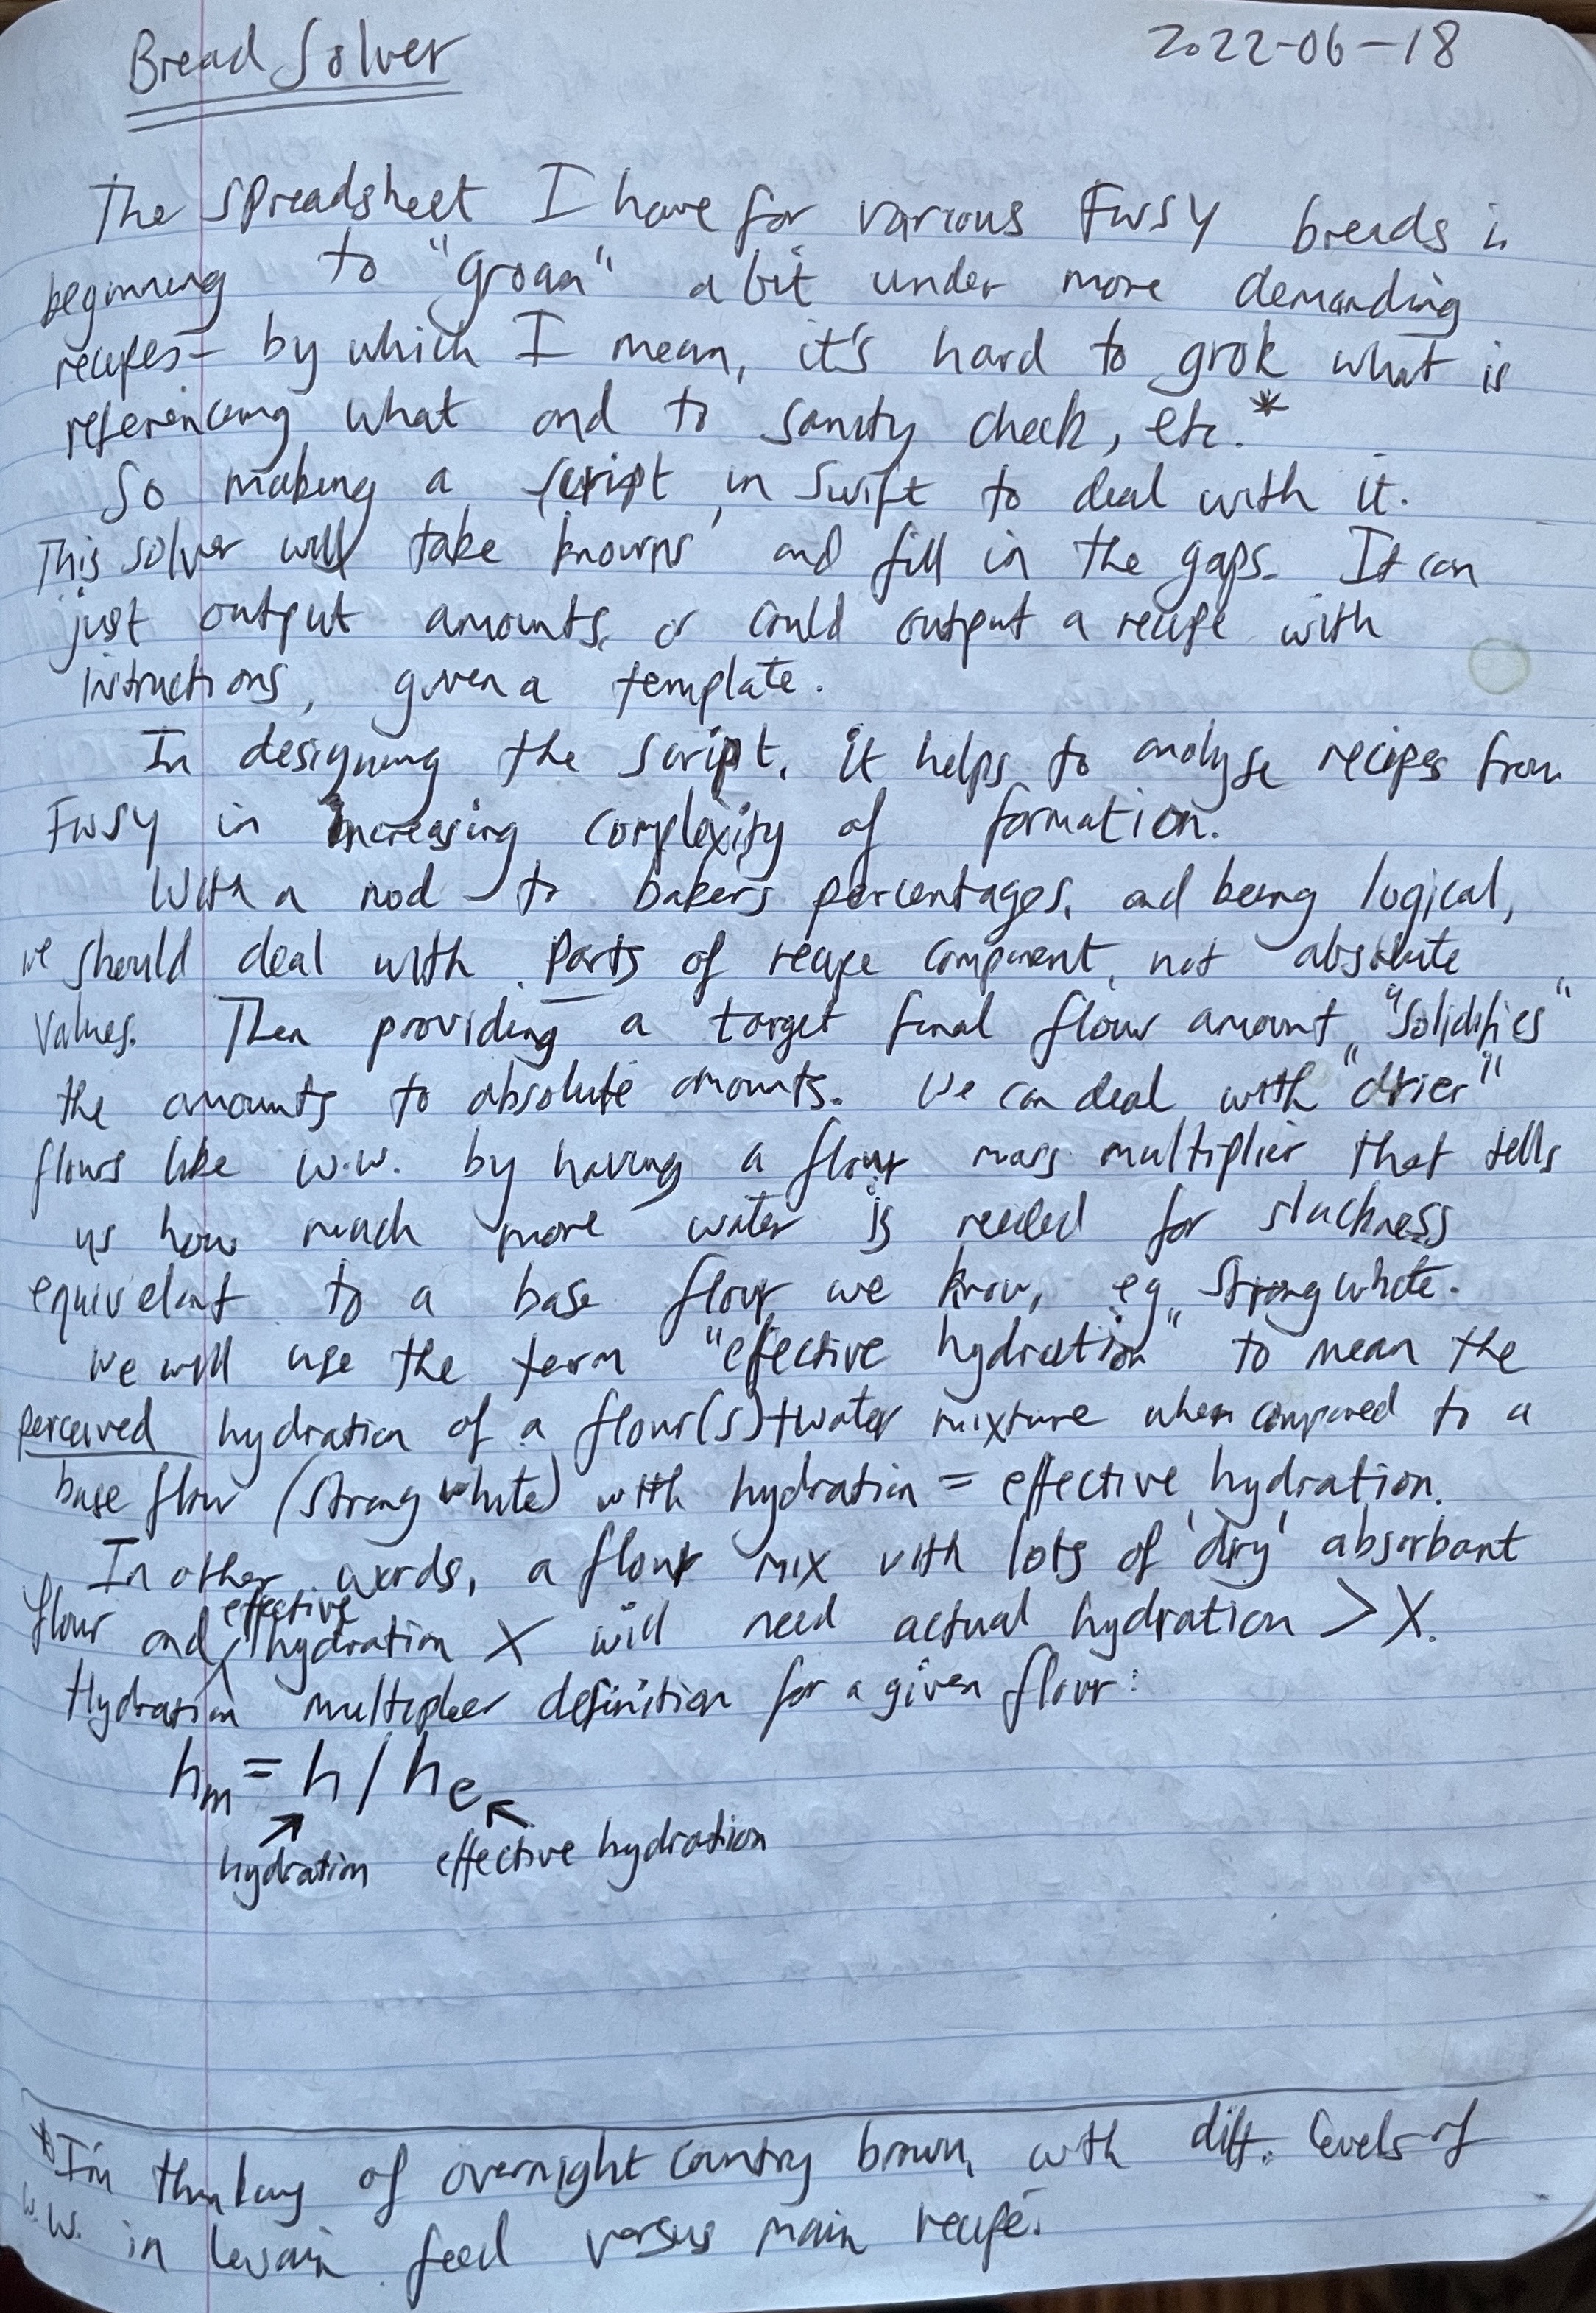 Bread Solver
2022-06-18
The spreadsheet I have for various FWSY breads is
beginning to "groan" a bit under more demanding
recipes - by which I mean, it's hard to grok what is
referencing what and to sanity check, etc.*
So making a script in Swift to deal with it.
This solver will take knowns and fill in the gaps. It can
just output amounts, or could output a recipe with
intructions, given a template.
In designing the script, it helps to analyse recipes from
FWSY in increasing complexity of formation.
With a nod to bakers percentages, and being logical,
we should deal with parts of recipe component, not absolute
values. Then providing a target final flour amount "solidifies"
the amounts to absolute amounts. We can deal with "drier"
flours like w.w. by having a flour mass multiplier that tells
us how much more water is needed for slackness
equivelant to a base flour we know, eg strong white.
We will use the term "effective hydration" to mean the
perceived hydration of a flour(s)+water mixture when compared to a
base flour (strong white) with hydration = effective hydration.
In other words, a flour mix with lots of 'dry' absorbant
flour and effective hydration X will need actual hydration > X.
Hydration multiplier definition for a given flour:
hm = h / he
hydration effective hydration
*I'm thinking of overnight country brown, with diff. levels of
w.w. in levain feed versus main recipe.